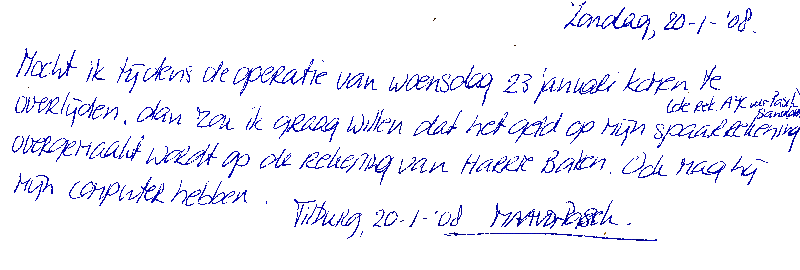 Zondag, 20-1-'08.
Mocht ik tijdens de operatie van woensdag 23 januari komen te
overlijden, dan zou ik graag willen dat het geld op mijn spaarrekening
overgemaakt wordt op de rekening van Harrie Baten. Ook mag hij
mijn computer hebben.
Tilburg, 20-1-'08